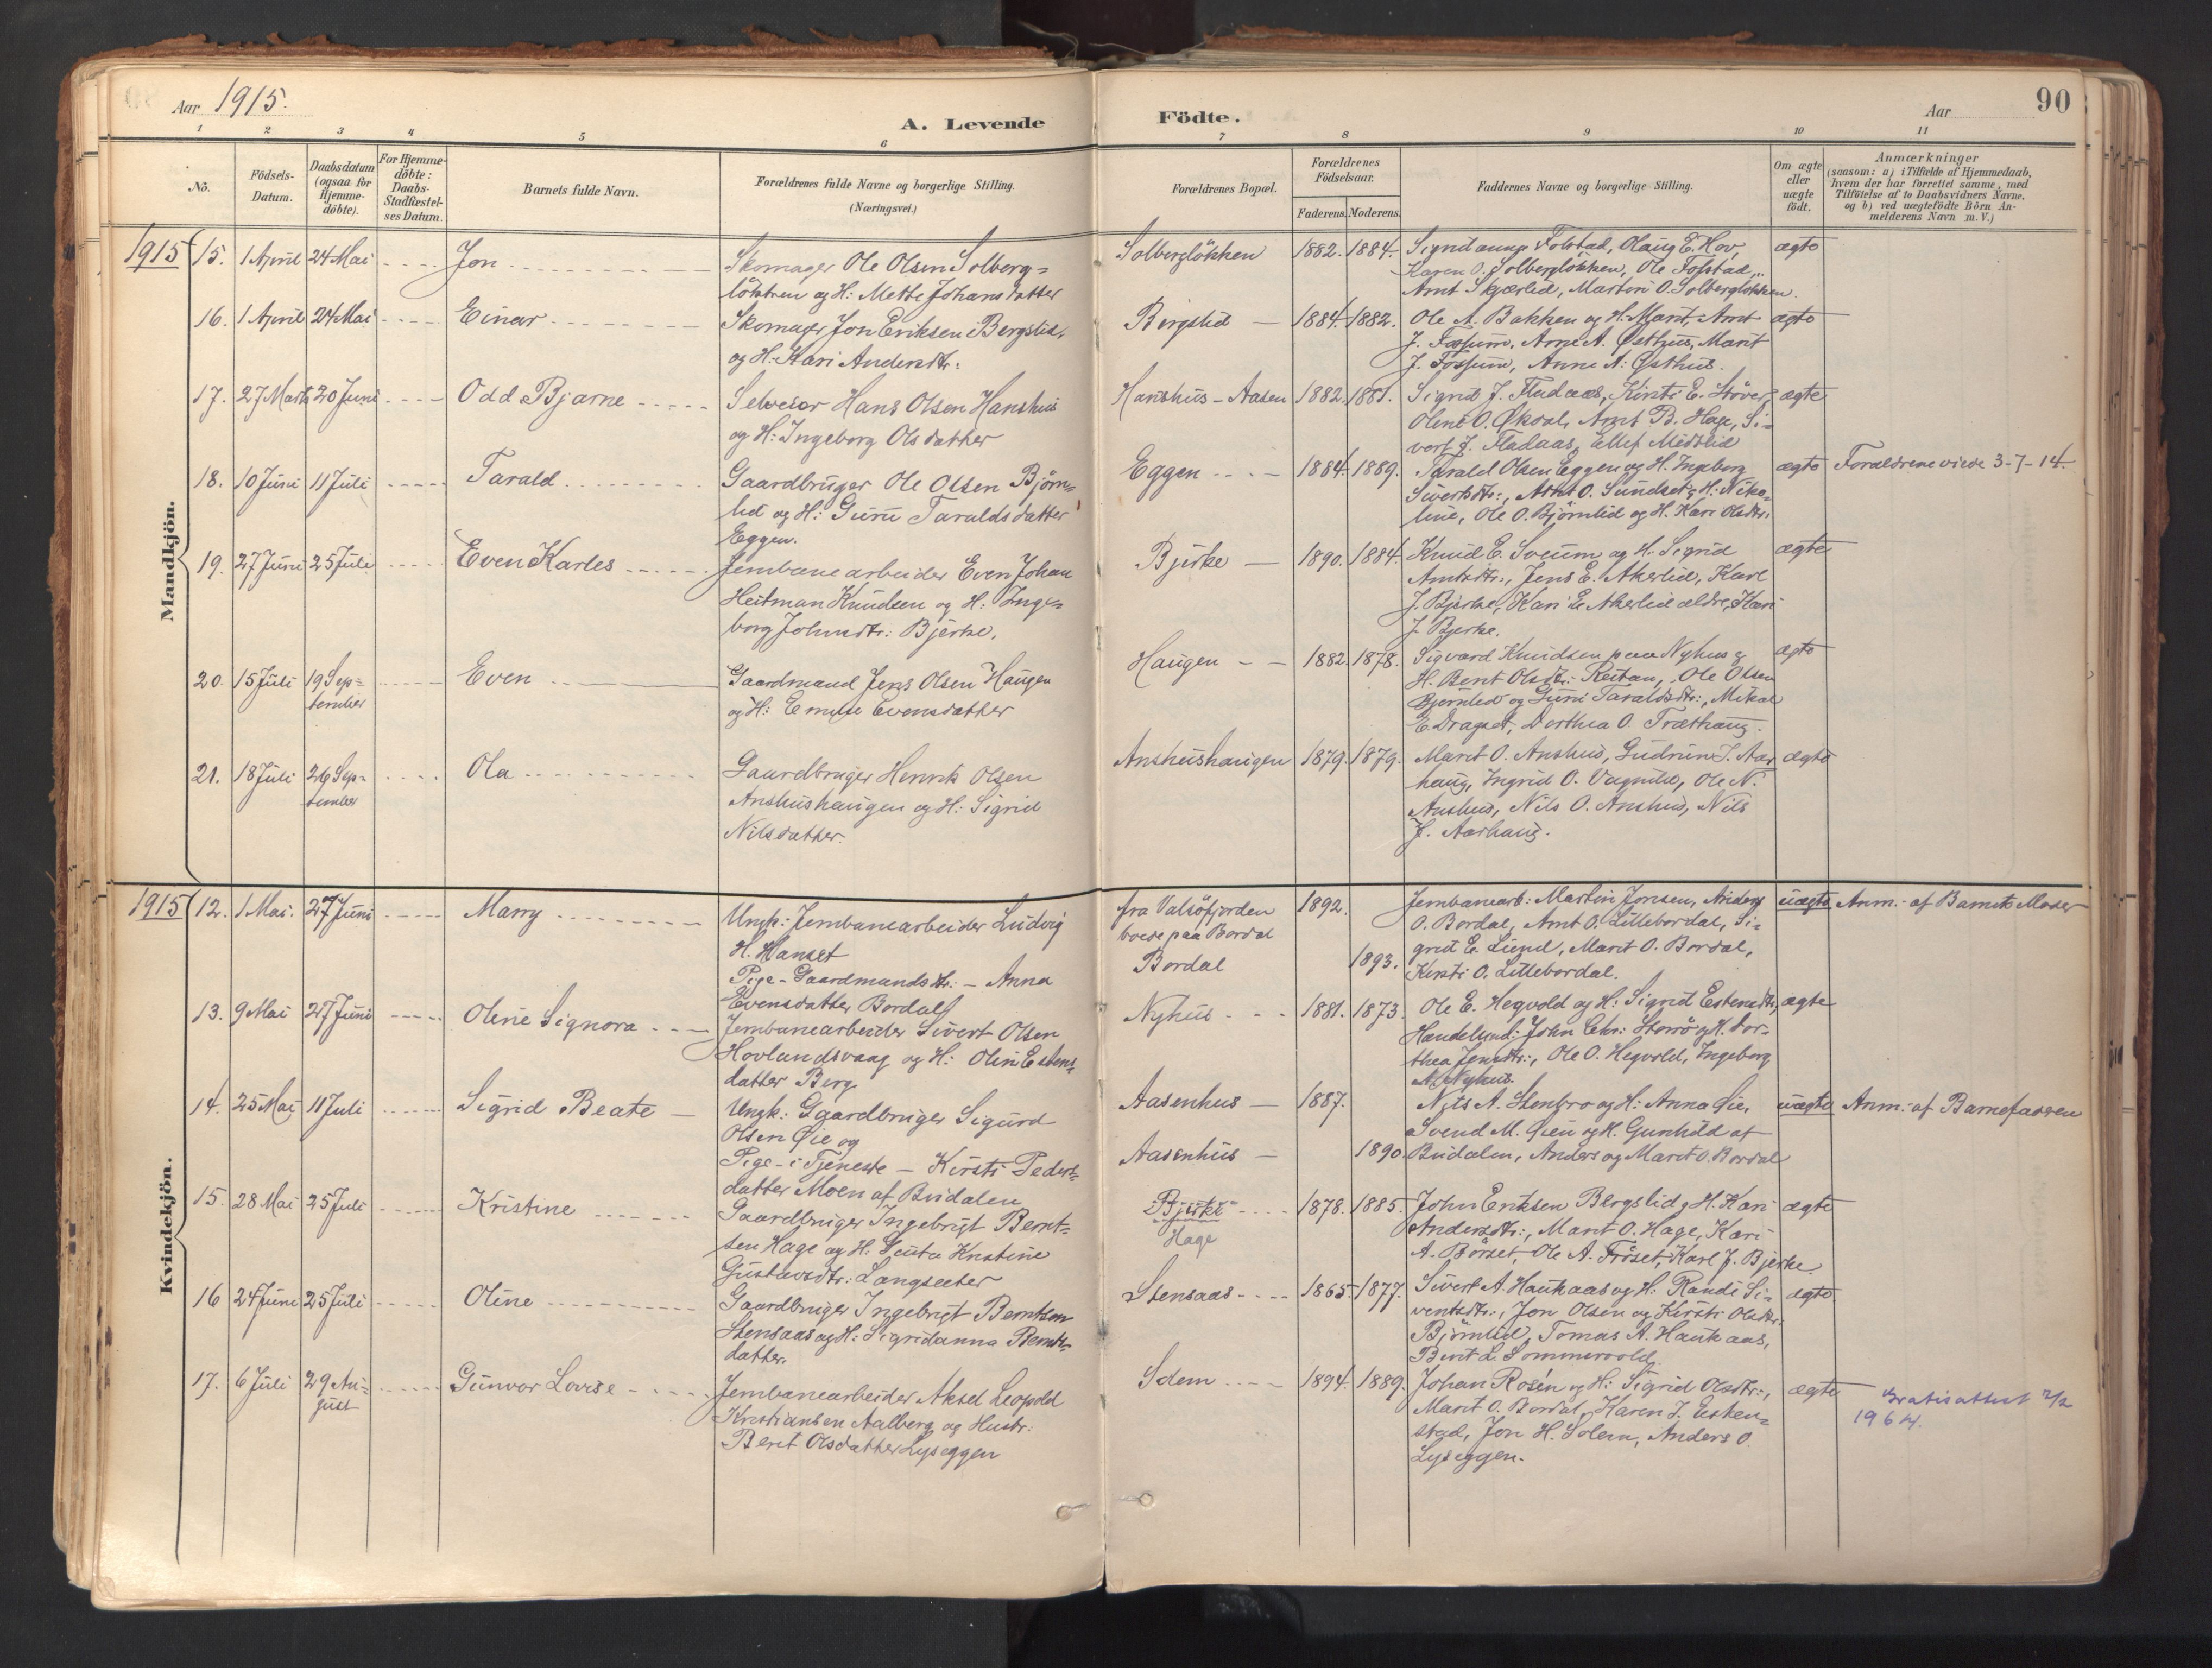 Aar 1915.
A. Levende
1 2 3 4 5 6
Nö.
Födsels-
Datum.
Daabsdatum
(ogsaa for
Hjemme-
döbte).
For Hjemme-
döbte:
Daabs-
Stadfæstel-
ses Datum.
Barnets fulde Navn.
Forældrenes fulde Navne og borgerlige Stilling.
(Næringsvei.)
Mandkjön.
1915 15. 1 April 24 Mai Jon
Skomager Ole Olsen Solberg-
løkken og H: Mette Johansdatter
16. 1 April 24 Mai Einar
Skomager Jon Eriksen Bergslid,
og H: Kari Andersdtr:
17. 27 Marts 20 Juni Odd Bjarne
Selveier Hans Olsen Hanshus
og H: Ingeborg Olsdatter
18. 10 Juni 11 Juli Tarald
Gaardbruger Ole Olsen Bjørn-
lid og H: Guru Taraldsdatter
Eggen.
19. 27 Juni 25 Juli Even Karles
Jernbanearbeider Even Johan
Heitman Knudsen og H: Inge-
borg Johnsdtr: Bjerke.
20. 15 Juli 19 Sep-
tember
Even
Gaardmand Jens Olsen Haugen
og H: Evensdatter
21. 18 Juli 26 Sep-
tember
Ola
Gaardbruger Henrik Olsen
Anshushaugen og H: Sigrid
Nilsdatter.
Kvindekjön.
1915 12. 1 Mai. 27 Juni Marry
Ungk: Jernbanearbeider Ludvig
H. Hanset
Pige - Gaardmandsdtr: - Anna
Evensdatter Bordal
13. 9 Mai 27 Juni Oline Signora
Jernbanearbeider Sivert Olsen
Hovlandsvaag og H: Olin Estens-
datter Berg
14. 25 Mai 11 Juli Sigrid Beate
Ungk: Gaardbruger Sigurd
Olsen Øie og
Pige - i Tjeneste - Kirsti Peders-
datter Moen af Budalen
15. 28 Mai 25 Juli Kristine
Gaardbruger Ingebrigt Bernt-
sen Hage og H. Kristine
Gustavsdtr: Langseeter
16 24 Juni 25 Juli Oline
Gaardbruger Ingebrigt Berntsen
Stensaas og H: Sigridanna Bernts-
datter.
17. 6 Juli 29 Au-
gust
Gunvor Lovise
Jernbanearbeider Aksel Leopold
Kristiansen Aalberg og Hustr:
Berit Olsdatter Lyseggen
Födte.
Aar
90
7 8 9 10 11
Forældrenes Bopæl.
Forældrenes
Födselsaar.
Faderens. Moderens.
Faddernes Navne og borgerlige Stilling.
Om ægte
eller
uægte
födt.
Anmærkninger
(saasom: a) i Tilfælde af Hjemmedaab,
hvem der har forrettet samme, med
Tilföielse af to Daabsvidners Navne.
og b) ved uægtefödte Börn An-
melderens Navn m. V.)
Solbergløkken 1882. 1884. Sigridanna Folstad, Olaug E. Hov, ægte
Karen O. Solbergløkken, Ole Folstad,
Arnt Skjærlid, Martin O. Solbergløkken.
Bergslid 1884. 1882. Ole A. Bakken og H. Marit, Arnt ægte
J. Fossum, Arne A. Østhus, Marit
J. Fossum, Anne A. Østhus.
Hanshus - Aasen 1882. 1881. Sigrid J. Fladaas, Kirsti E. Støver, ægte
Oline O. Økdal, Arnt B. Hage, Si-
vert J. Fladaas, Ellef Medtlid
Eggen 1884. 1889. Tarald Olsen Eggen og H. Ingeborg ægte Forældrene viede 3-7-14.
Sivertsdtr:, Arnt O. Sundset & H: Niko-
line, Ole O. Bjørnlid og H. Kari Olsdtr:
Bjerke 1890. 1884. Knud E. Sveum og H. Sigrid ægte
Arntsdtr:, Jens E. Akerlid, Karl
J. Bjerke, Kari E. Akerlid ældre, Kari
J. Bjerke.
Haugen 1882. 1878. Sigvard Knudsen paa Nyhus & ægte
H. Berit Olsdtr: Reitan, Ole Olsen
Bjørnlid og Guru Taraldsdtr:, Mikal
E. Dragset, Dorthea O. Træthaug.
Anshushaugen 1879. 1879. Marit O. Anshus, Gudrun J. Aar- ægte
haug, Ingrid O. Vagnild, Ole N.
Anshus, Nils O. Anshus, Nils
J. Aarhaug.
fra Valsöfjorden
boede paa Bordal
1892. Jernbanearb: Martin Jonsen, Anders uægte Anm: af Barnets Moder
O. Bordal, Arnt O. Lillebordal, Si-
Bordal 1893. grid E. Lund, Marit O. Bordal,
Kirsti O. Lillebordal.
Nyhus 1881. 1873. Ole E. Hegvold og H: Sigrid Estensdtr, ægte
Handelsmd: John Chr: Storrø og H. Dor-
thea Jensdtr:, Ole O. Hegvold, Ingeborg
N. Nyhus.
Aasenhus 1887. Nils A. Stenbro og H: Anna Øie, uægte Anm: af Barnefaderen
Svend M. Øien og H. Gunhild af
Aasenhus 1890. Budalen, Anders og Marit O. Bordal
Bjerke
Hage
1878. 1885. John Eriksen Bergslid & H. Kari ægte
Andersdtr:, Marit O. Hage, Kari
A. Börset, Ole A. Fröset, Karl J. Bjerke.
Stensaas 1865. 1877. Sivert A. Haukaas og H: Randi Si- ægte
vertsdtr:, Jon Olsen og Kirsti Olsdtr:
Bjørnlid, Tomas A. Haukaas,
Berit L. Sommervold.
Idem 1894. 1889. Johan Rosén og H: Sigrid Olsdtr:, ægte
Marit O. Bordal, Karen J. Esten-
stad, Jon H. Solem, Anders O.
Lyseggen.
Gratisattest 7/2
1964.